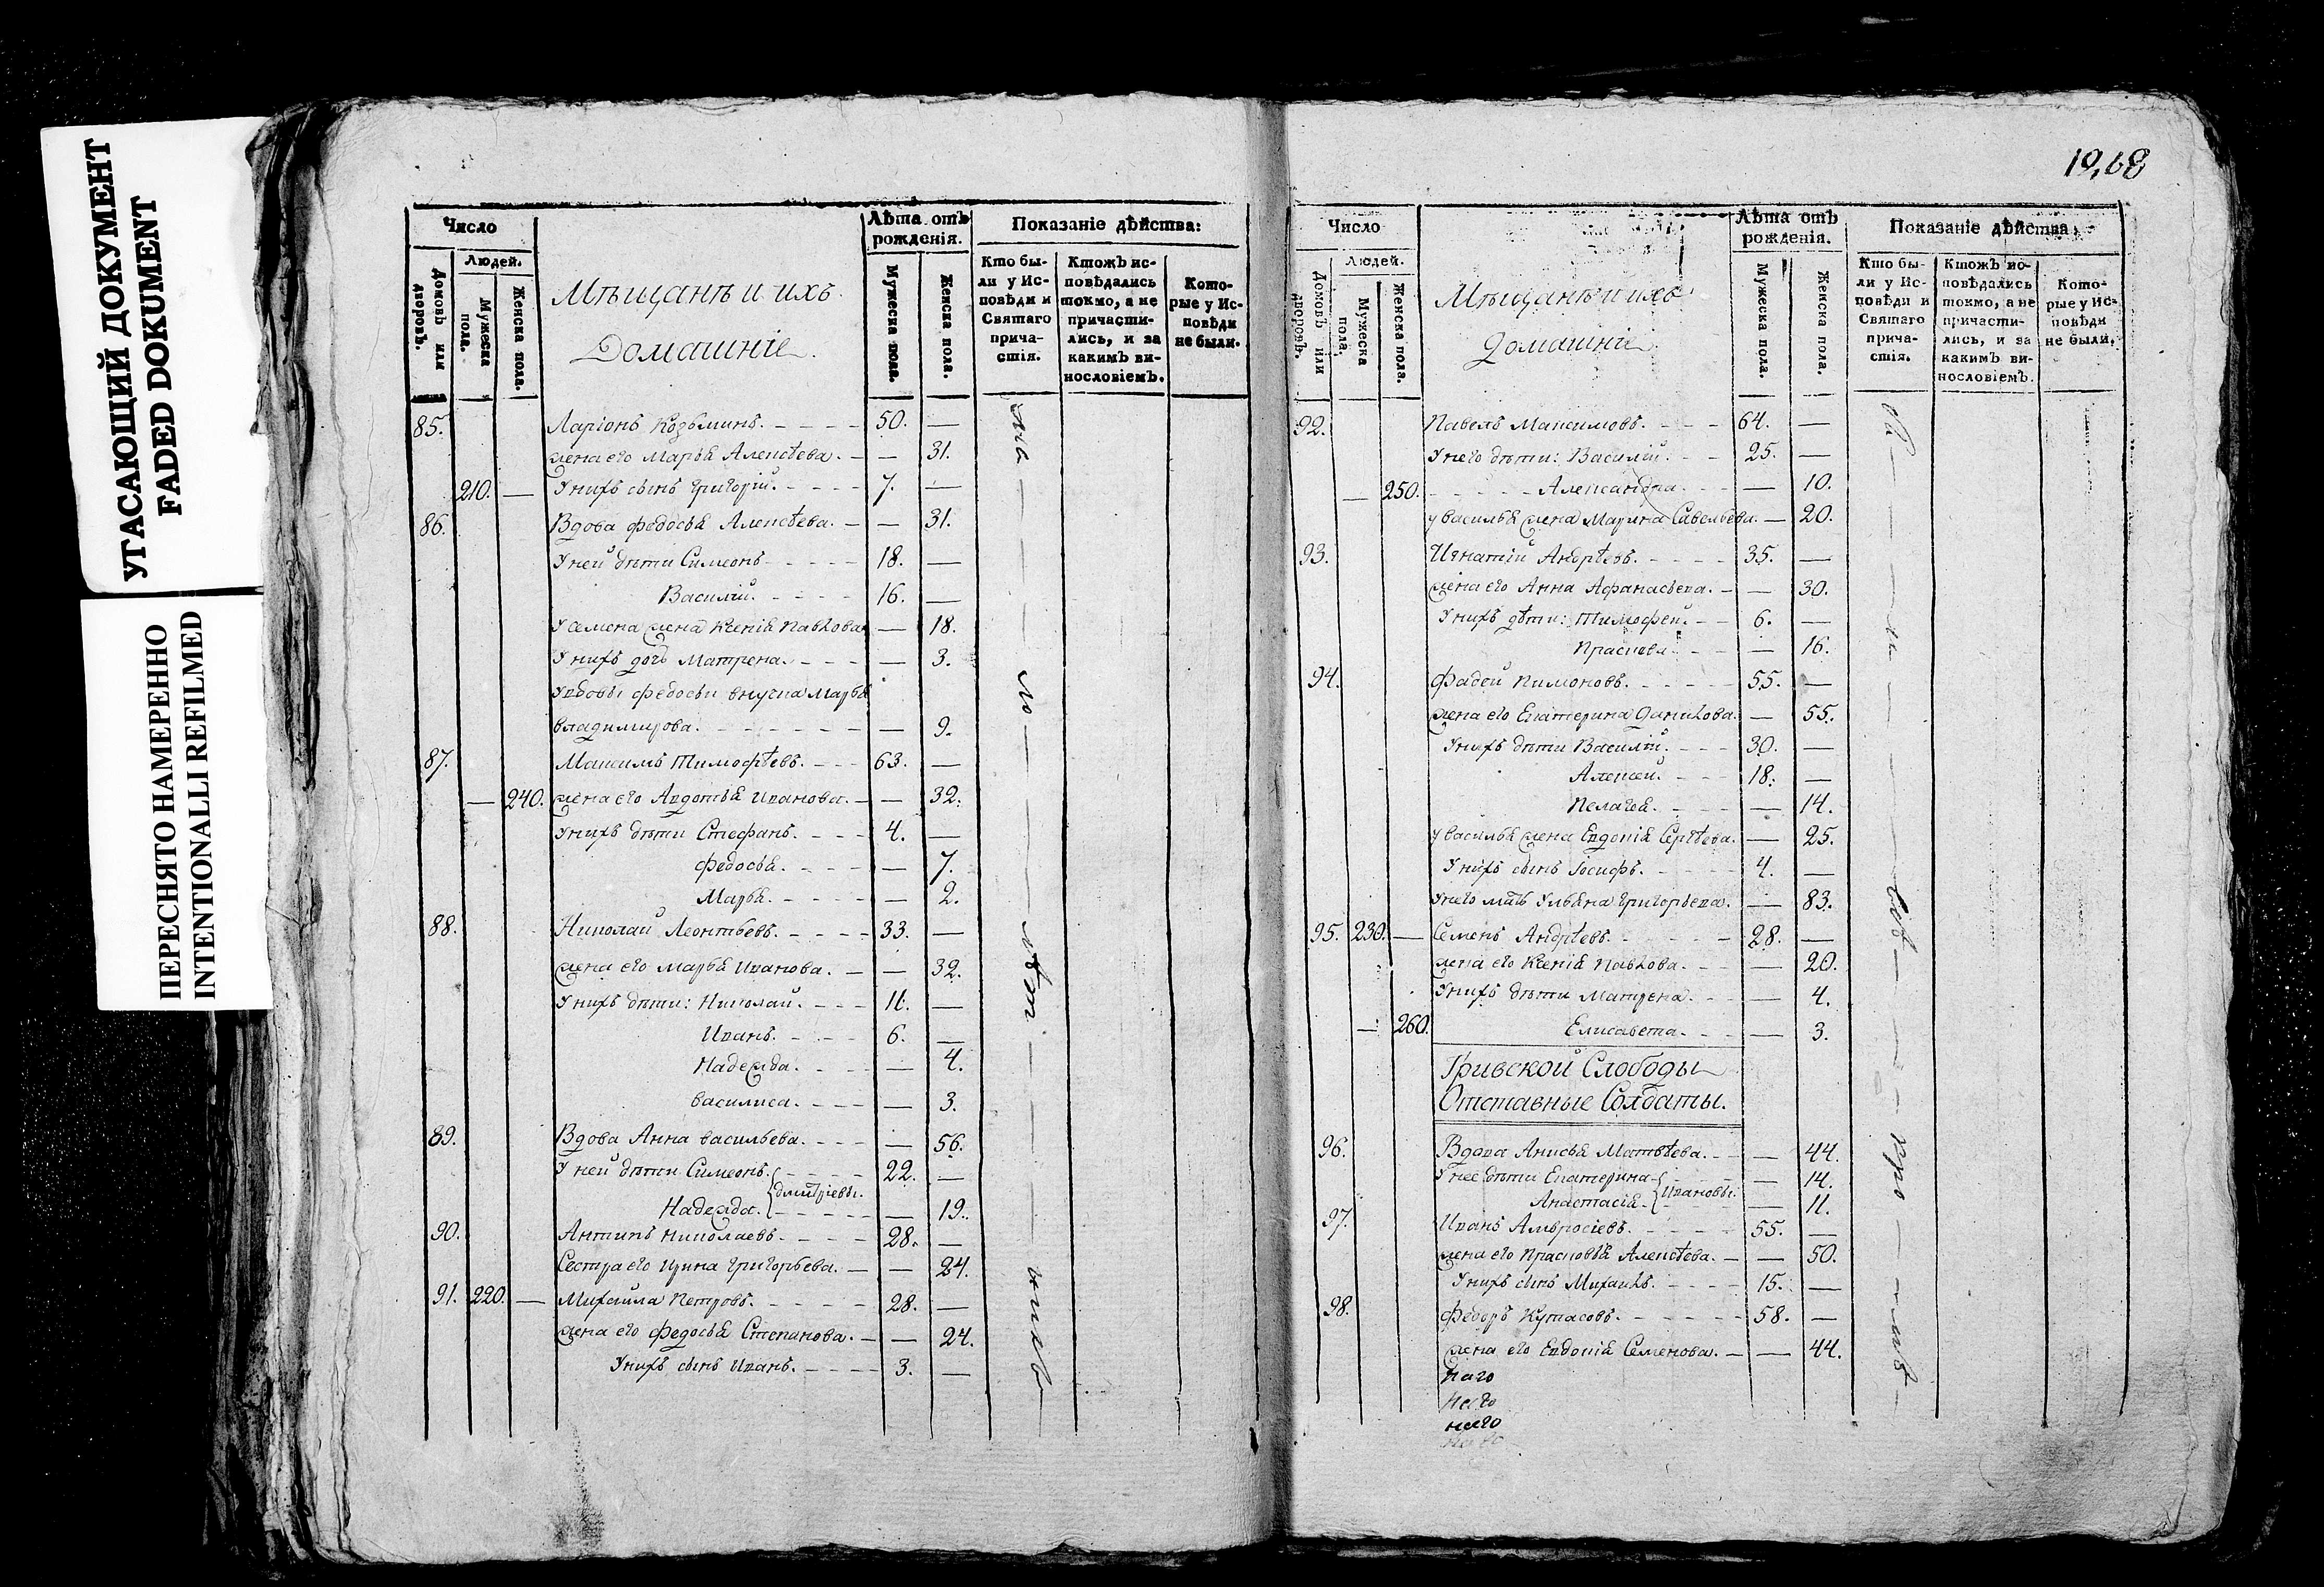 УГАСАЮЩИЙ ДОКУМЕНТ
FADED DOKUMENT
ПЕРЕСНЯТО НАМЕРЕННО
INTENTIONALLI REFILMED
Число
Людей.
Домовъ или дворовъ.
Мужеска пола.
Женска пола.
Мѣщанѣ и ихъ
Домашніе.
Лѣта отъ рожденія.
Мужеска пола.
Женска пола.
Показаніе дѣйства:
Кто бы-
ли у Ис-
повѣди и
Святаго
прича-
стія.
Ктожъ ис-
повѣдались
токмо, а не
причасти-
лись, и за
какимъ ви-
нословіемъ.
Кото-
рые у Ис-
повѣди
не были.
85. Ларіонъ Козьминъ. 50. —
жена его Марья Алексѣева. — 31.
210. — У нихъ сынъ Григорій. 7. —
86. Вдова Федосья Алексѣева. — 31.
У ней дѣти Симеонъ 18. —
Василій. 16. —
У Семена жена Ксенія Павлова — 18.
У нихъ дочь Матрена. — 3.
У вдовы Федосьи внучка Марья
Владимирова. — 9.
87. Максимъ Тимофѣевъ. 63. —
— 240. жена его Авдотья Иванова. — 32.
У нихъ дѣти Стефанъ. 4. —
Федосья. — 7.
Марья. — 2.
88. Николай Леонтьевъ. 33. —
жена его Марья Иванова. — 32.
У нихъ дѣти: Николай. 11. —
Иванъ. 6. —
Надежда. — 4.
Василиса. — 3.
89. Вдова Анна Васильева. — 56.
У ней дѣти Симеонъ. 22. —
Дмитріевы.
Надежда. — 19.
90. Антипъ Николаевъ. 28. —
Сестра его Ирина Григорьева. — 24.
91. 220. — Михайла Петровъ. 28. —
жена его Федосья Степанова. — 24.
У нихъ сынъ Иванъ. 3. —
19,68
Число
Людей.
Домовъ или дворовъ.
Мужеска пола.
Женска пола.
Мѣщанѣ и ихъ
Домашніе
Лѣта отъ рожденія.
Мужеска пола.
Женска пола.
Показаніе дѣйства
Кто бы-
ли у Ис-
повѣди и
Святаго
прича-
стія.
Ктожъ ис-
повѣдались
токмо, а не
причасти-
лись, и за
какимъ ви-
нословіемъ.
Кото-
рые у Ис-
повѣди
не были.
92. Павелъ Максимовъ. 64. —
У него дѣти: Василій. 25. —
— 250. Александра. — 10.
у Василья жена Марина Савельева. — 20.
93. Игнатій Андрѣевъ. 35. —
жена его Анна Афанасьева. — 30.
У нихъ дѣти: Тимофей. 6. —
— 16.
94. Фадей Пимоновъ. 55. —
жена его Екатерина Данилова. — 55.
У нихъ дѣти Василій. 30. —
Алексей. 18. —
Пелагея. — 14.
у Василья жена Евдокія Сергѣева. — 25.
У нихъ сынъ Іосифъ. 4. —
У него мать Ульяна Григорьева. — 83.
95. 230. — Семенъ Андрѣевъ. 28. —
жена его Ксенія Павлова. — 20.
У нихъ дѣти Матрена. — 4.
— 260. Елисавета. — 3.
Гривской Слободы
Отставные Солдаты.
96. Вдова Анисья Матвѣева. — 44.
У нее дѣти Екатерина — 14.
Ивановы.
Анастасія. — 11.
97. Иванъ Амвросіевъ. 55. —
жена его Прасковья Алексѣева. — 50.
У нихъ сынъ Михаилъ. 15. —
98. Федоръ Кутасовъ. 58. —
жена его Евдокія Семенова. — 44.